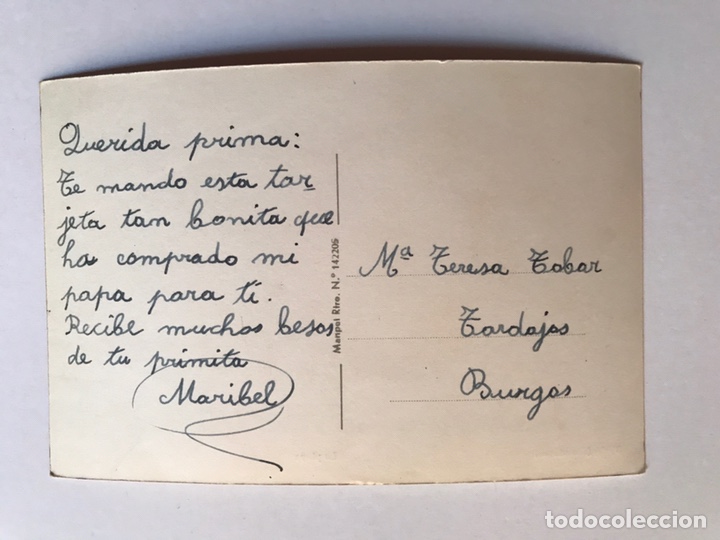 Querida prima:
Te mando esta tar
jeta tan bonita que
ha comprado mi
papa para ti.
Recibe muchos besos
de tu primita
Maribel
Manpol Rtro. N.º 142206
Mª Teresa Tobar
Tardajos
Burgos
todocoleccion